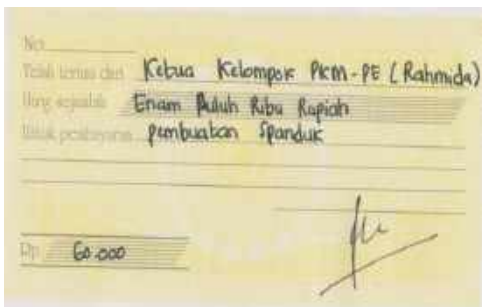 No.
Telah terima dari Ketua Kelompok PKM-PE (Rahmida)
Uang sejumlah Enam Puluh Ribu Rupiah
Untuk pembayaran pembuatan Spanduk
Rp 60.000